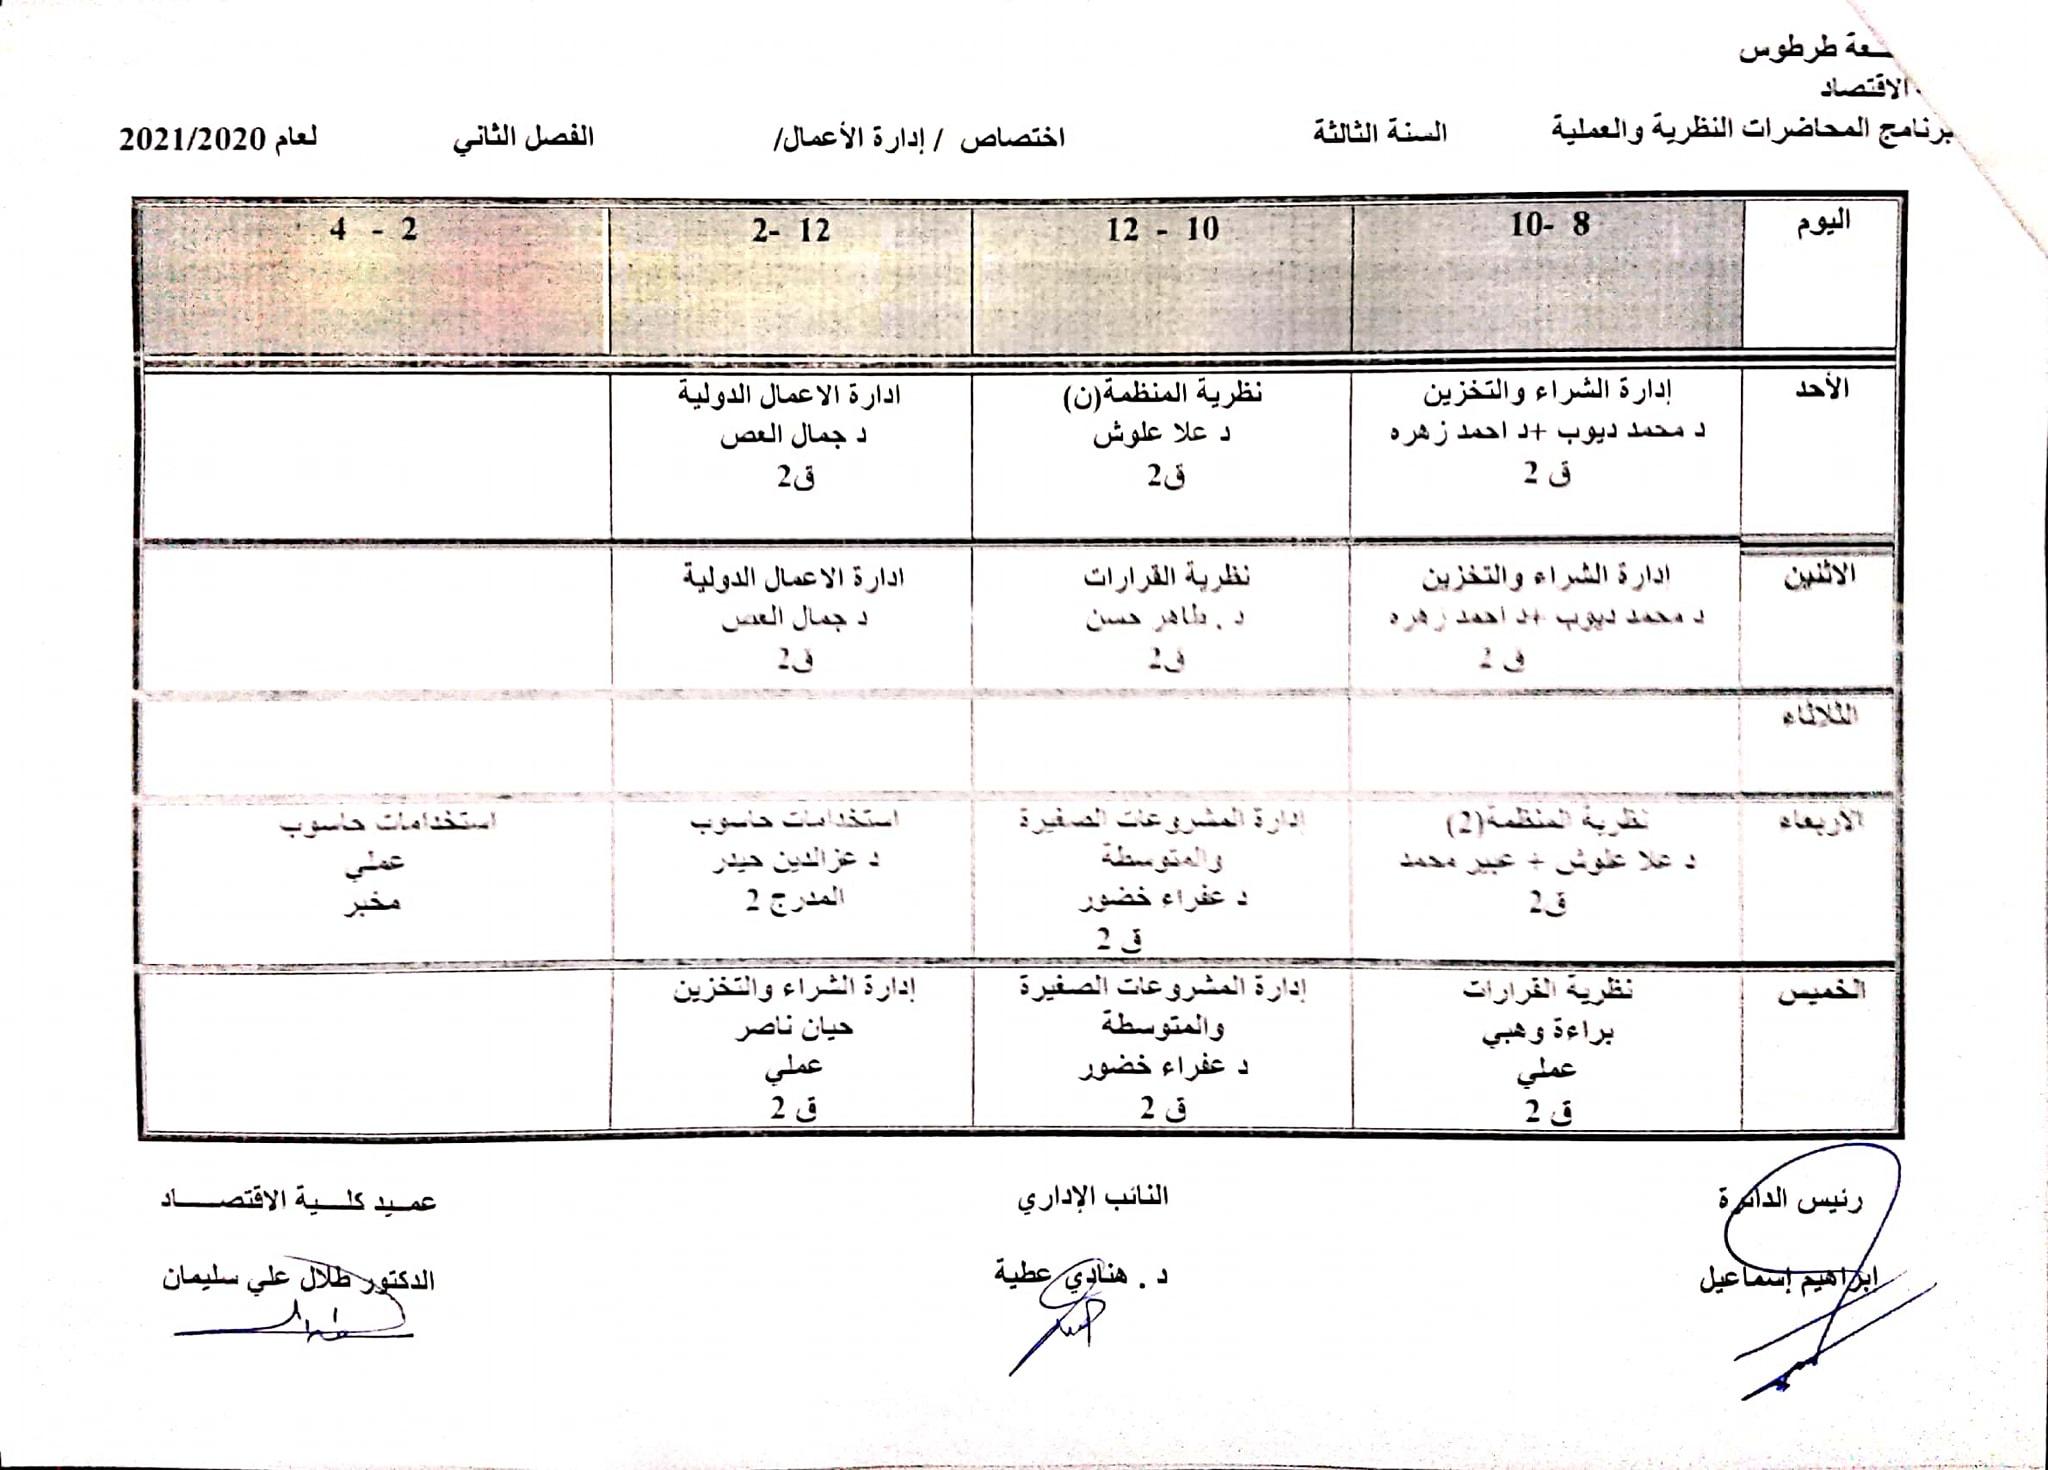 ـعة طرطوس
الاقتصاد
برنامج المحاضرات النظرية والعملية السنة الثالثة اختصاص / إدارة الأعمال/ الفصل الثاني لعام 2021/2020
اليوم 8 -10 10 - 12 12 -2 2 - 4
الأحد
إدارة الشراء والتخزين
د محمد ديوب +د احمد زهره
ق 2
نظرية المنظمة(ن)
د علا علوش
ق2
ادارة الاعمال الدولية
د جمال العص
ق2
الاثنين
إدارة الشراء والتخزين
د محمد ديوب +د احمد زهره
ق 2
نظرية القرارات
د . طاهر حسن
ق2
ادارة الاعمال الدولية
د جمال العص
ق2
الثلاثاء
الاربعاء
نظرية المنظمة(2)
د علا علوش + عبير محمد
ق2
إدارة المشروعات الصغيرة
والمتوسطة
د عفراء خضور
ق 2
استخدامات حاسوب
د عزالدين حيدر
المدرج 2
استخدامات حاسوب
عملي
مخبر
الخميس
نظرية القرارات
براءة وهبي
عملي
ق 2
إدارة المشروعات الصغيرة
والمتوسطة
د عفراء خضور
ق 2
إدارة الشراء والتخزين
حيان ناصر
عملي
ق 2
رئيس الدائرة النائب الإداري عميد كلية الاقتصاد
ابراهيم إسماعيل د . هنادي عطية الدكتور طلال علي سليمان